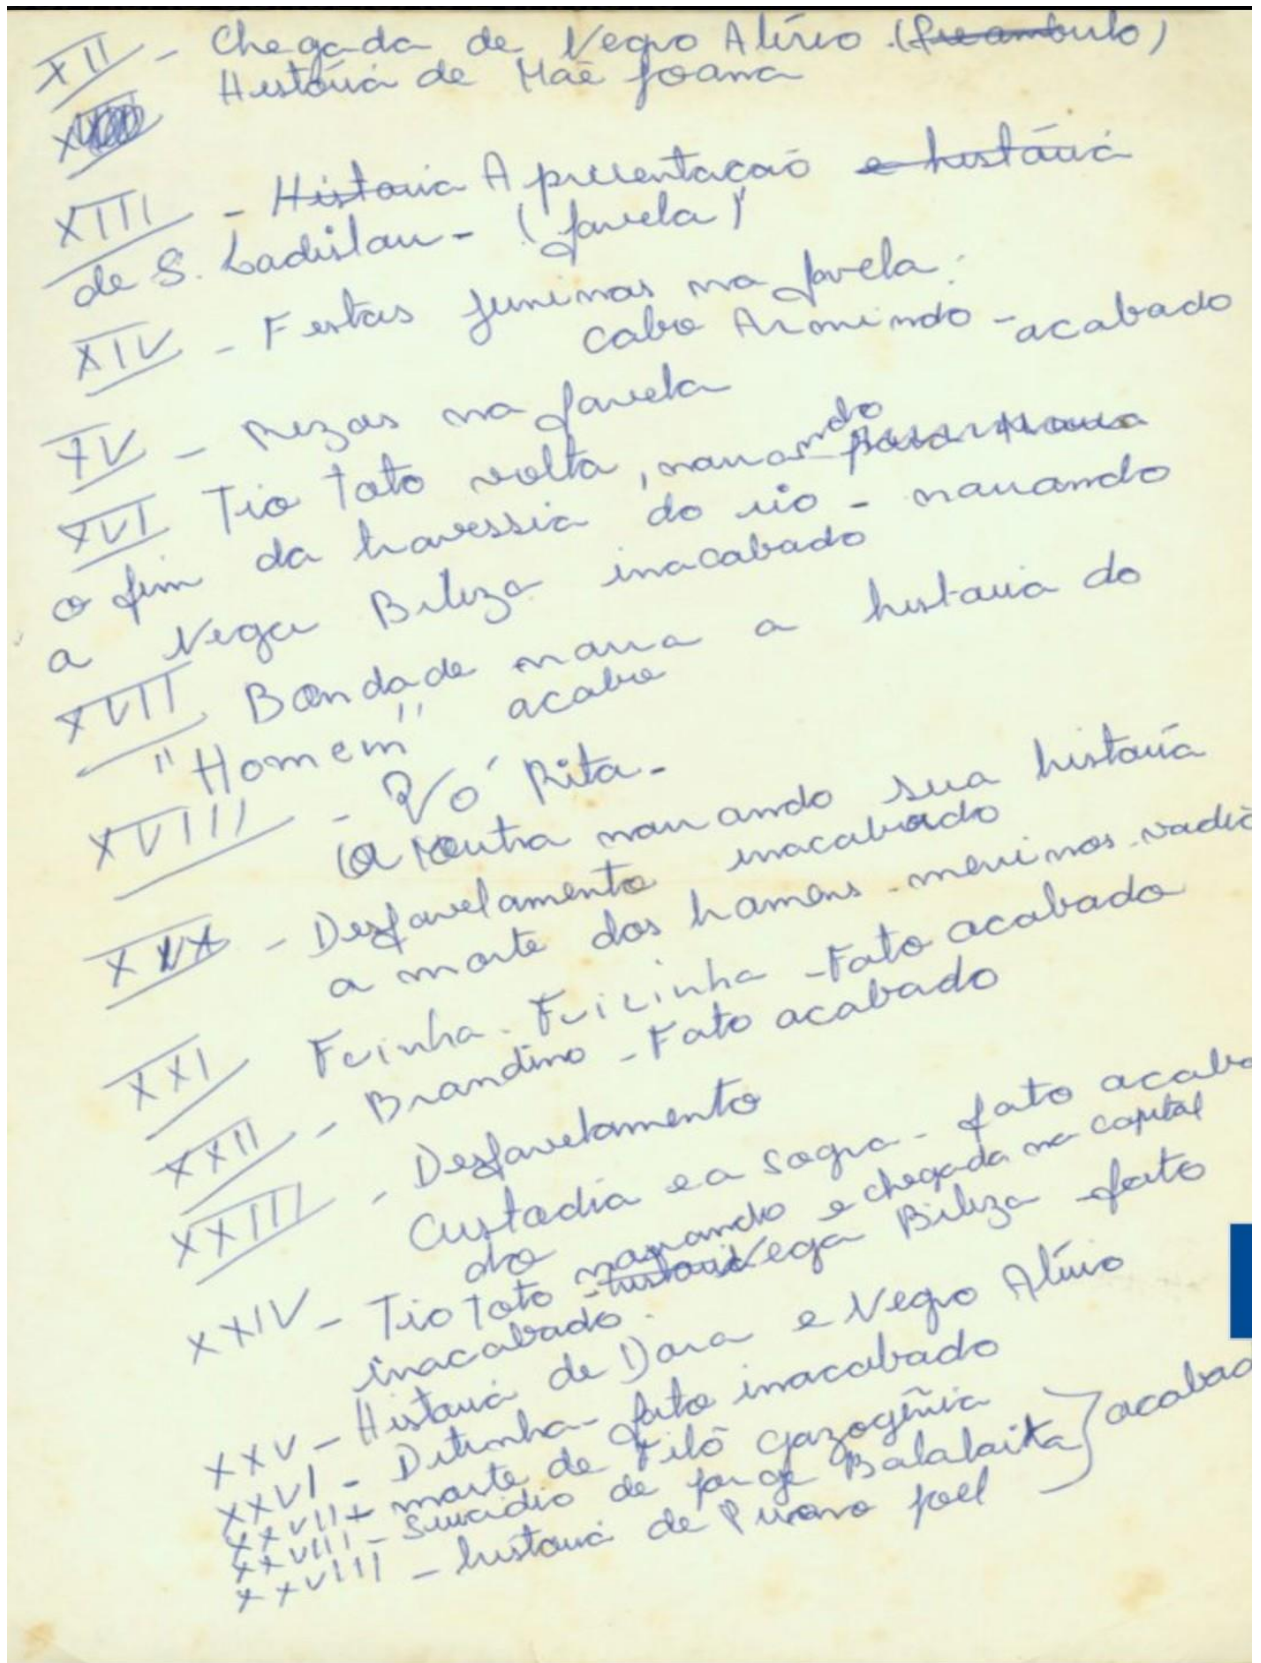 XII - Chegada de Negro Alírio. (preambulo)
História de Mãe Joana
XIII - Historia Apresentação e história
de S. Ladislau - (favela)
XIV - Festas juninas na favela.
Cabo Armindo - acabado
XV - Rezas na favela
XVI Tio Tato volta, narrando para Maria
o fim da travessia do rio - narrando
a Nega Biliza inacabado
XVII Bondade narra a historia do
"Homem" acaba
XVIII - Vó Rita -
(A Outra narrando sua história
inacabado
XXX - Desfavelamento
a morte dos homens - meninos - vadio
XXI Fuinha. Fuizinha - Fato acabado
XXII - Brandino - Fato acabado
XXIII - Desfavelamento
Custodia e a sogra - fato acaba
do
XXIV - Tio Tato narrando e chegada na capital
historia Nega Biliza - fato
inacabado.
XXV - História de Dora e Negro Alírio
XXVI - Ditinha - fato inacabado
XXVII + morte de Filó Gazogênia
XXVIII - Suicidio de Jorge Balalaika } acabad
XXVIII - história de Pivovo Joel